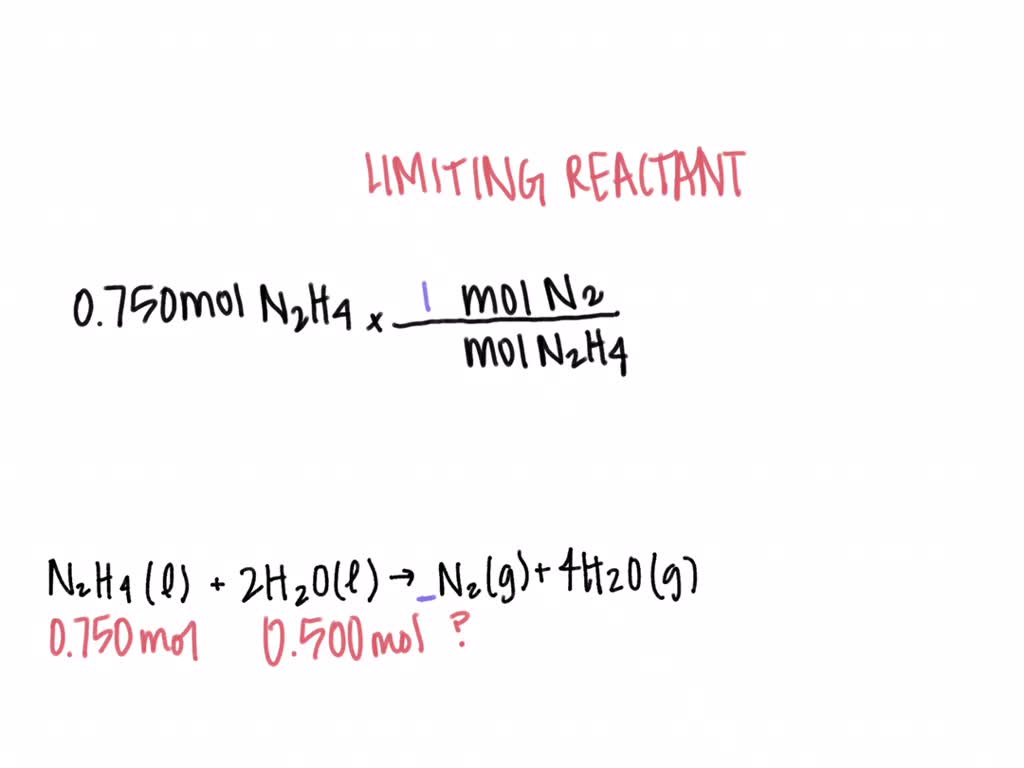 LIMITING REACTANT
0.750mol N₂H₄ × 1 mol N₂
mol N₂H₄
N₂H₄(l) + 2H₂O(l) → _N₂(g) + 4H₂O(g)
0.750mol 0.500mol ?